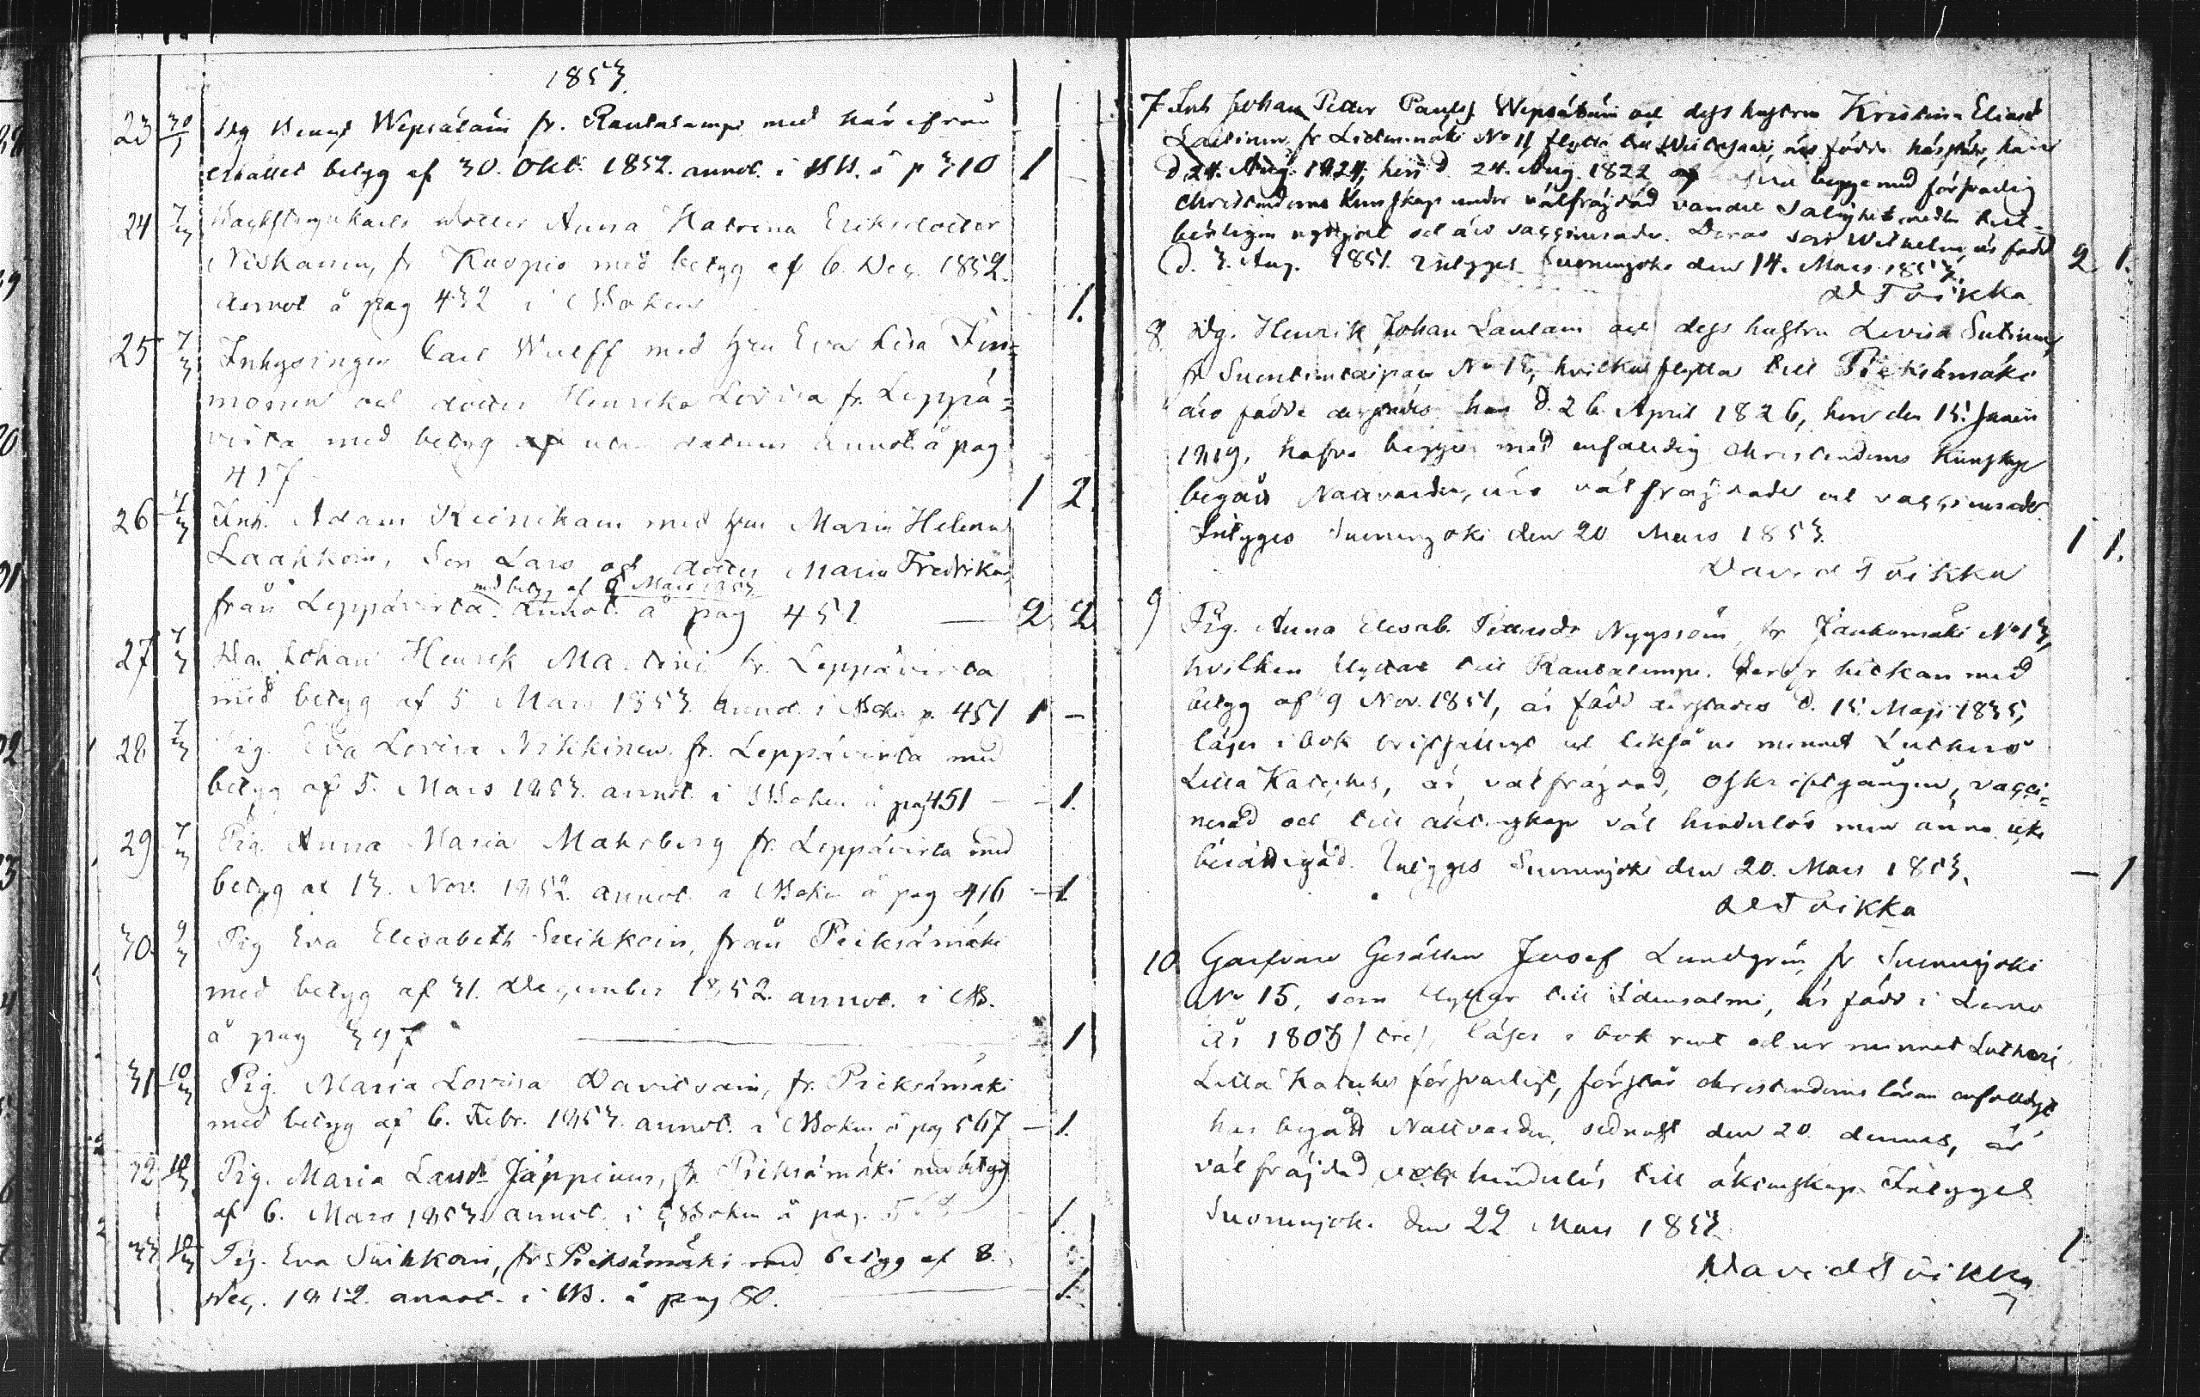 1853.
23 30/1 Dg Bengt Wepsäläin fr. Rautalampi med här ifrån
erhållet betyg af 30. Okt. 1852. annot. i KB. å p 310 1 -
24 7/3 Backstugukarls dotter Anna Katrina Eriksdotter
Niskanen, fr Kuopio med betyg af 6. Dec. 1852.
annot å pag 432 i Boken 1.
25 7/3 Inhysingen Carl Wulff med hu Eva Lisa Tim=
monen och dotter Henrika Lovisa fr. Leppä=
virta med betyg af utan datum annot å pag
417 1 2
26 7/3 Inh. Adam Reinikain med hu Maria Helena
Laakkoin, Son Lars och dotter Maria Fredrika
med betyg af 6 Mars 1853
från Leppävirta annot. å pag 451. 2 2
27 7/3 Da. Johan Henrik Martini fr. Leppävirta
med betyg af 5 Mars 1853. annot. i Boken p. 451 1 -
28 7/3 Pig. Eva Lovisa Nikkinen fr. Leppävirta med
betyg af 5. Mars 1853. annot. i Boken å pag 451 - 1.
29 7/3 Pig. Anna Maria Mahrberg fr. Leppävirta med
betyg af 13. Nov. 1852. annot. i Boken å pag 416 - 1
30. 9/3 Pig Eva Elisabeth Suihkoin, från Pieksämäki
med betyg af 31. December 1852. annot. i KB.
å pag 397 - 1
31 10/3 Pig. Maria Lovisa Davitsain, fr. Pieksämäki
med betyg af 6. Febr. 1853. annot. i Boken å pag 567 - 1.
32 10/3 Pig. Maria Larsdr Jäppinen, fr Pieksämäki med betyg
af 6. Mars 1853. annot. i Boken å pag. 1.
33 10/3 Pig. Eva Suihkoin, fr Pieksämäki med betyg af 8.
Dec. 1852. annot. i KB. å pag 80. 1.
7 Inh Johan Petter Paulss Wepsäläin och dess hustru Kristina Eliasdr
Laitinen fr Lintumäki No 11 flytta till äro födde härstädes, han
d. 24. Aug. 1824, hon d. 24. Aug. 1822 begge med försvarlig
christendoms kunskap under välfräjdad vandel salighetsmedlen
begagnat och äro vaccinerade. Deras son Wilhelm, är född
d. 3. Aug. 1851. Intygges Suonenjoki den 14. Mars 1853. 2 1.
D Toikka
8. Dg. Henrik Johan Laulain och dess hustru Lovisa Sutinen,
fr Suontientaipale No 15, hvilka flytta till Pieksämäki
äro födde därstädes han d. 26 April 1826, hon den 15. Junii
1819, hafva begge med enfaldig christendoms kunskap
begått Nattvarden, äro välfräjdade och vaccinerade
Intyges Suonenjoki den 20 Mars 1853. 1 1.
David Toikka
9 Pig. Anna Elisab. Pettersdr Nyyssöin, fr Jauhomäki No 13,
hvilken flyttar till Rautalampi. derifr hitkom med
betyg af 9 Nov. 1851, är född därstädes d. 15. Maji 1835,
läser i bok bristfälligt och likså ur minnet Luthers
Lilla Kateches, är välfräjdad, oskriftgången, vacci=
nerad och till äktenskap väl hinderlös men ännu icke
berättigad. Intygges Suonenjoki den 20. Mars 1853. - 1
D Toikka
10 Garfvare Gesällen Josef Lundgrén fr Suonenjoki
No 15, som flyttar till Idensalmi, är född i Lovisa
år 1803 / tre /, läser i bok rent och ur minnet Lutheri
Lilla Kateches försvarligt, förstår christendoms läran enfaldigt
har begått Nattvarden, sednast den 20. dennes, är
välfräjdad och hinderlös till äktenskap. Intygget
Suonenjoki den 22 Mars 1853. 1
David Toikka